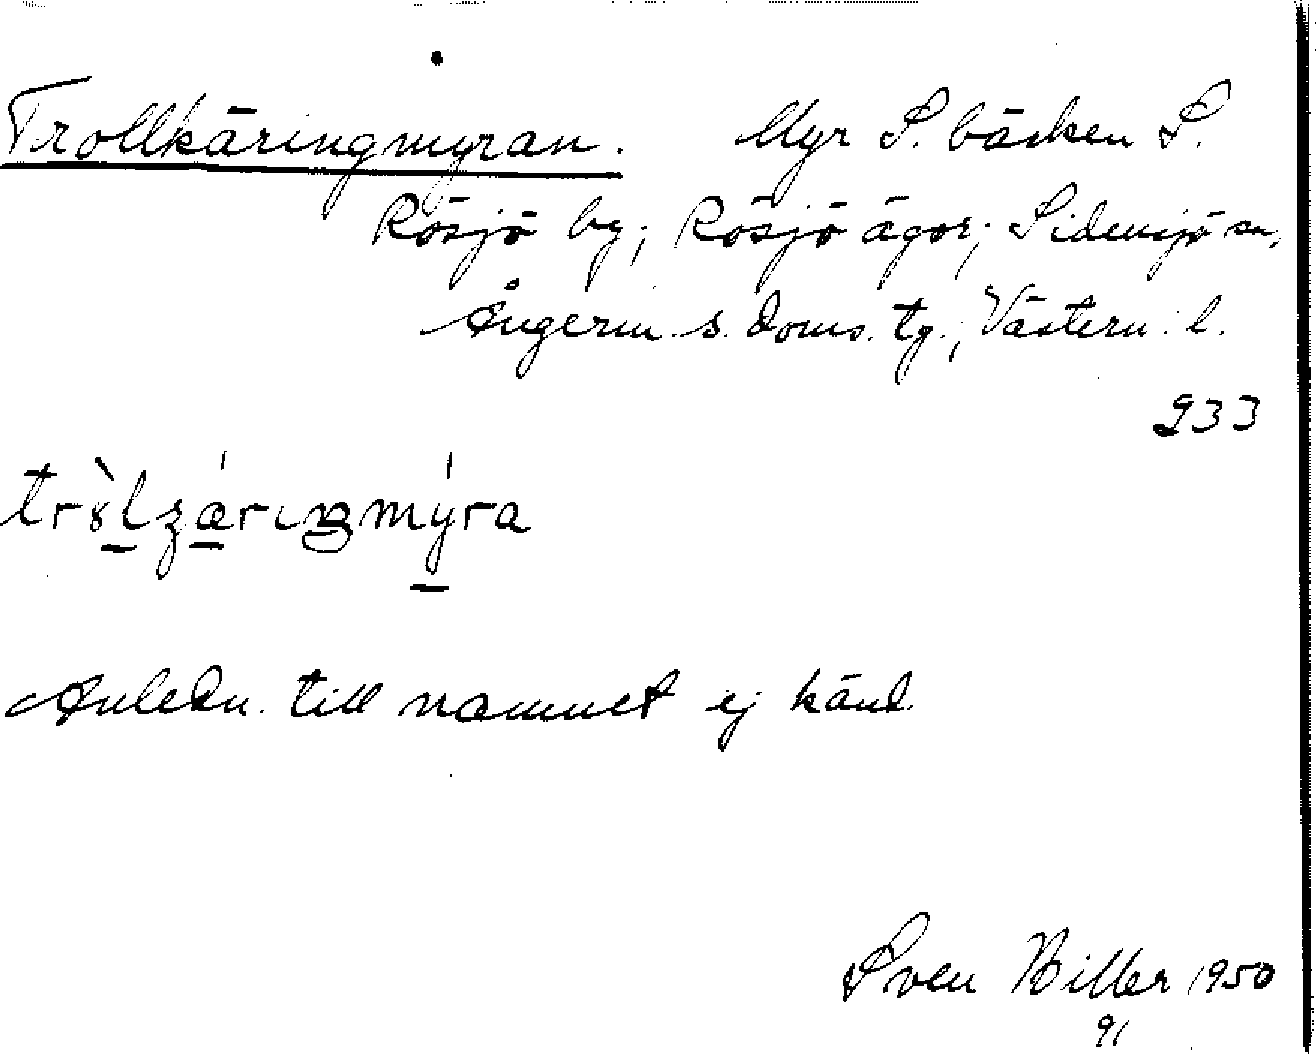 Trollkäringmyran. Myr S. bäcken S.
Rösjö by; Rösjö ägor; Sidensjö sn,
Ångerm. s. doms. tg.; Västern. l.
233
Anledn. till namnet ej känd.
Sven Biller 1950
91